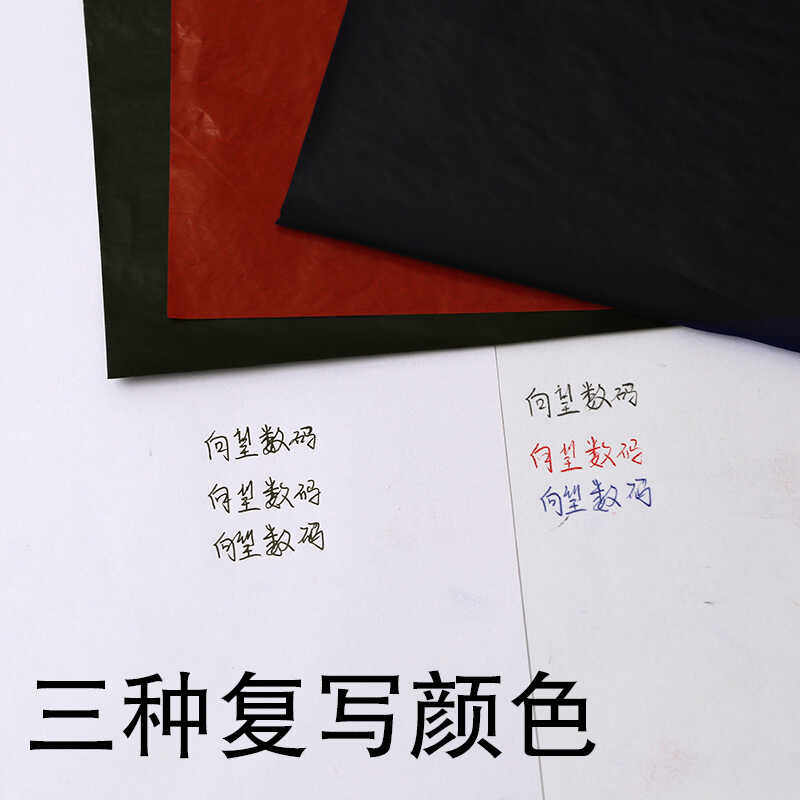 向望数码
向望数码
向望数码
向望数码
向望数码
向望数码
三种复写颜色